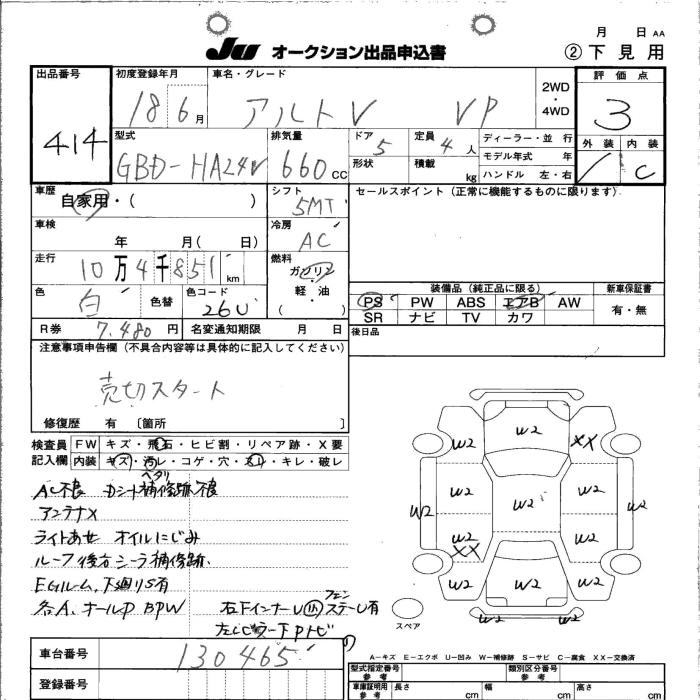 月 日 AA
JU オークション出品申込書 ②下見用
出品番号 初度登録年月 車名・グレード 2WD・4WD 評価点
414 18 6月 アルトV VP 3
型式 排気量 ドア 定員 ディーラー・並行 外装 内装
GBD-HA24V 660cc 5 4人 モデル年式 年 / C
形状 積載 kg ハンドル 左・右
車歴 自家用・( ) シフト 5MT セールスポイント(正常に機能するものに限ります)
車検 年 月( 日) 冷房 AC
走行 10万4千851km 燃料 ガソリン・軽油・
装備品(純正品に限る) 新車保証書
色 白 色替 色コード 26U PS PW ABS エアB AW 有・無
SR ナビ TV カワ
R券 7,480円 名変通知期限 月 日 後日品
注意事項申告欄(不具合内容等は具体的に記入してください)
売切スタート
修復歴 有 〔箇所 〕
検査員記入欄 FW キズ・飛石・ヒビ割・リペア跡・X要
内装 キズ・汚レ・コゲ・穴・スレ・キレ・破レ
ヘタリ
AC不良 Dシート補修跡不良
アンテナX
ライトあせ オイルにじみ
ルーフ後右シーラ補修跡
EGルーム、下廻りS有
各A、オールP BPW
右Fインナー
W2 W2 XX
W2 W2 W2 W2 W2
W2 XX W2
W2 W2 W2
W2 W2
スペア
A-キズ E-エクボ U-凹み W-補修跡 S-サビ C-腐食 XX-交換済
車台番号 130465
型式指定番号 参考 類別区分番号 参考
登録番号 車庫証明用 参考 長さ cm 幅 cm 高さ cm